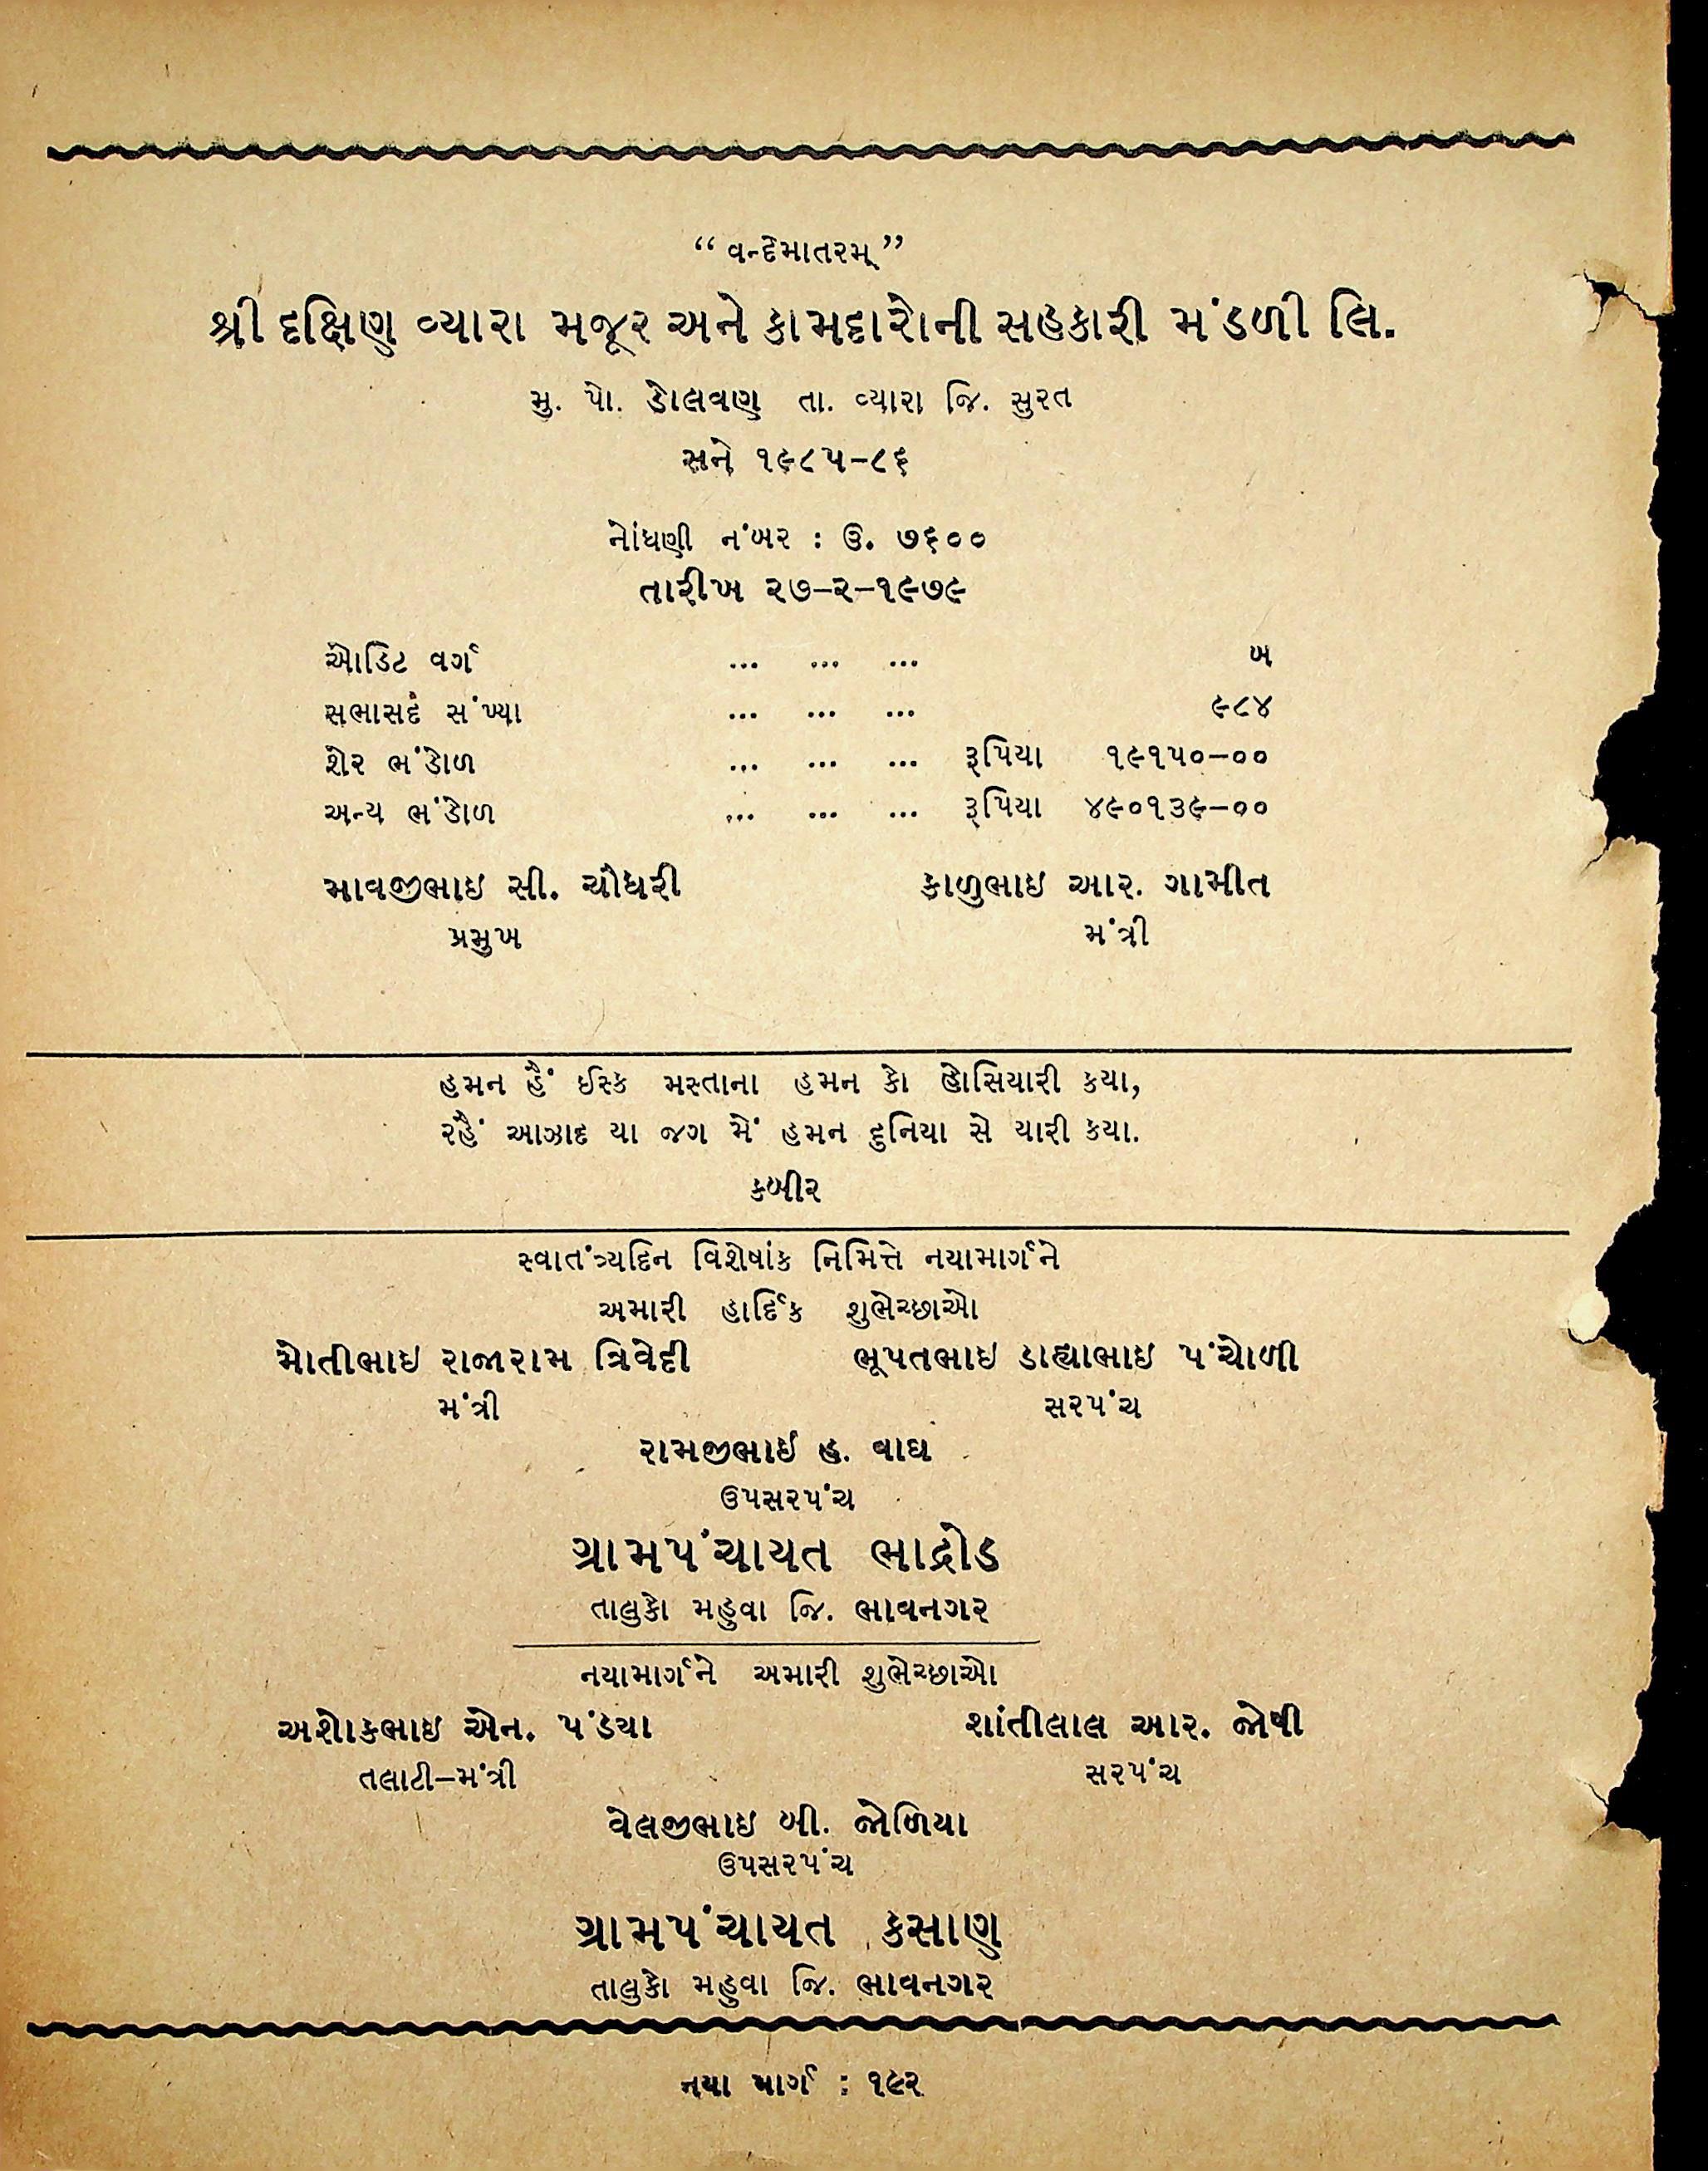 “ વન્દેમાતરમ્ ”
શ્રી દક્ષિણ વ્યારા મજૂર અને કામદારોની સહકારી મંડળી લિ.
મુ. પો. ડોલવણ તા. વ્યારા જિ. સુરત
સને ૧૯૮૫–૮૬
નોંધણી નંબર : ઉ. ૭૬૦૦
તારીખ ૨૭–૨–૧૯૭૯
ઓડિટ વર્ગ ... ... ... ખ
સભાસદ સંખ્યા ... ... ... ૯૮૪
શેર ભંડોળ ... ... ... રૂપિયા ૧૯૧૫૦–૦૦
અન્ય ભંડોળ ... ... ... રૂપિયા ૪૯૦૧૩૯–૦૦
માવજીભાઇ સી. ચૌધરી કાળુભાઇ આર. ગામીત
પ્રમુખ મંત્રી
હમન હૈં ઈસ્ક મસ્તાના હમન કો હોસિયારી કયા,
રહૈં આઝાદ યા જગ મેં હમન દુનિયા સે યારી કયા.
કબીર
સ્વાતંત્ર્યદિન વિશેષાંક નિમિત્તે નયામાર્ગને
અમારી હાર્દિક શુભેચ્છાઓ
મોતીભાઇ રાજારામ ત્રિવેદી ભૂપતભાઇ ડાહ્યાભાઇ પંચોળી
મંત્રી સરપંચ
રામજીભાઈ હ. વાઘ
ઉપસરપંચ
ગ્રામપંચાયત ભાદ્રોડ
તાલુકો મહુવા જિ. ભાવનગર
નયામાર્ગને અમારી શુભેચ્છાઓ
અશોકભાઇ એન. પંડયા શાંતીલાલ આર. જોષી
તલાટી–મંત્રી સરપંચ
વેલજીભાઇ બી. જોળિયા
ઉપસરપંચ
ગ્રામપંચાયત કસાણ
તાલુકો મહુવા જિ. ભાવનગર
નયા માર્ગ : ૧૯૨